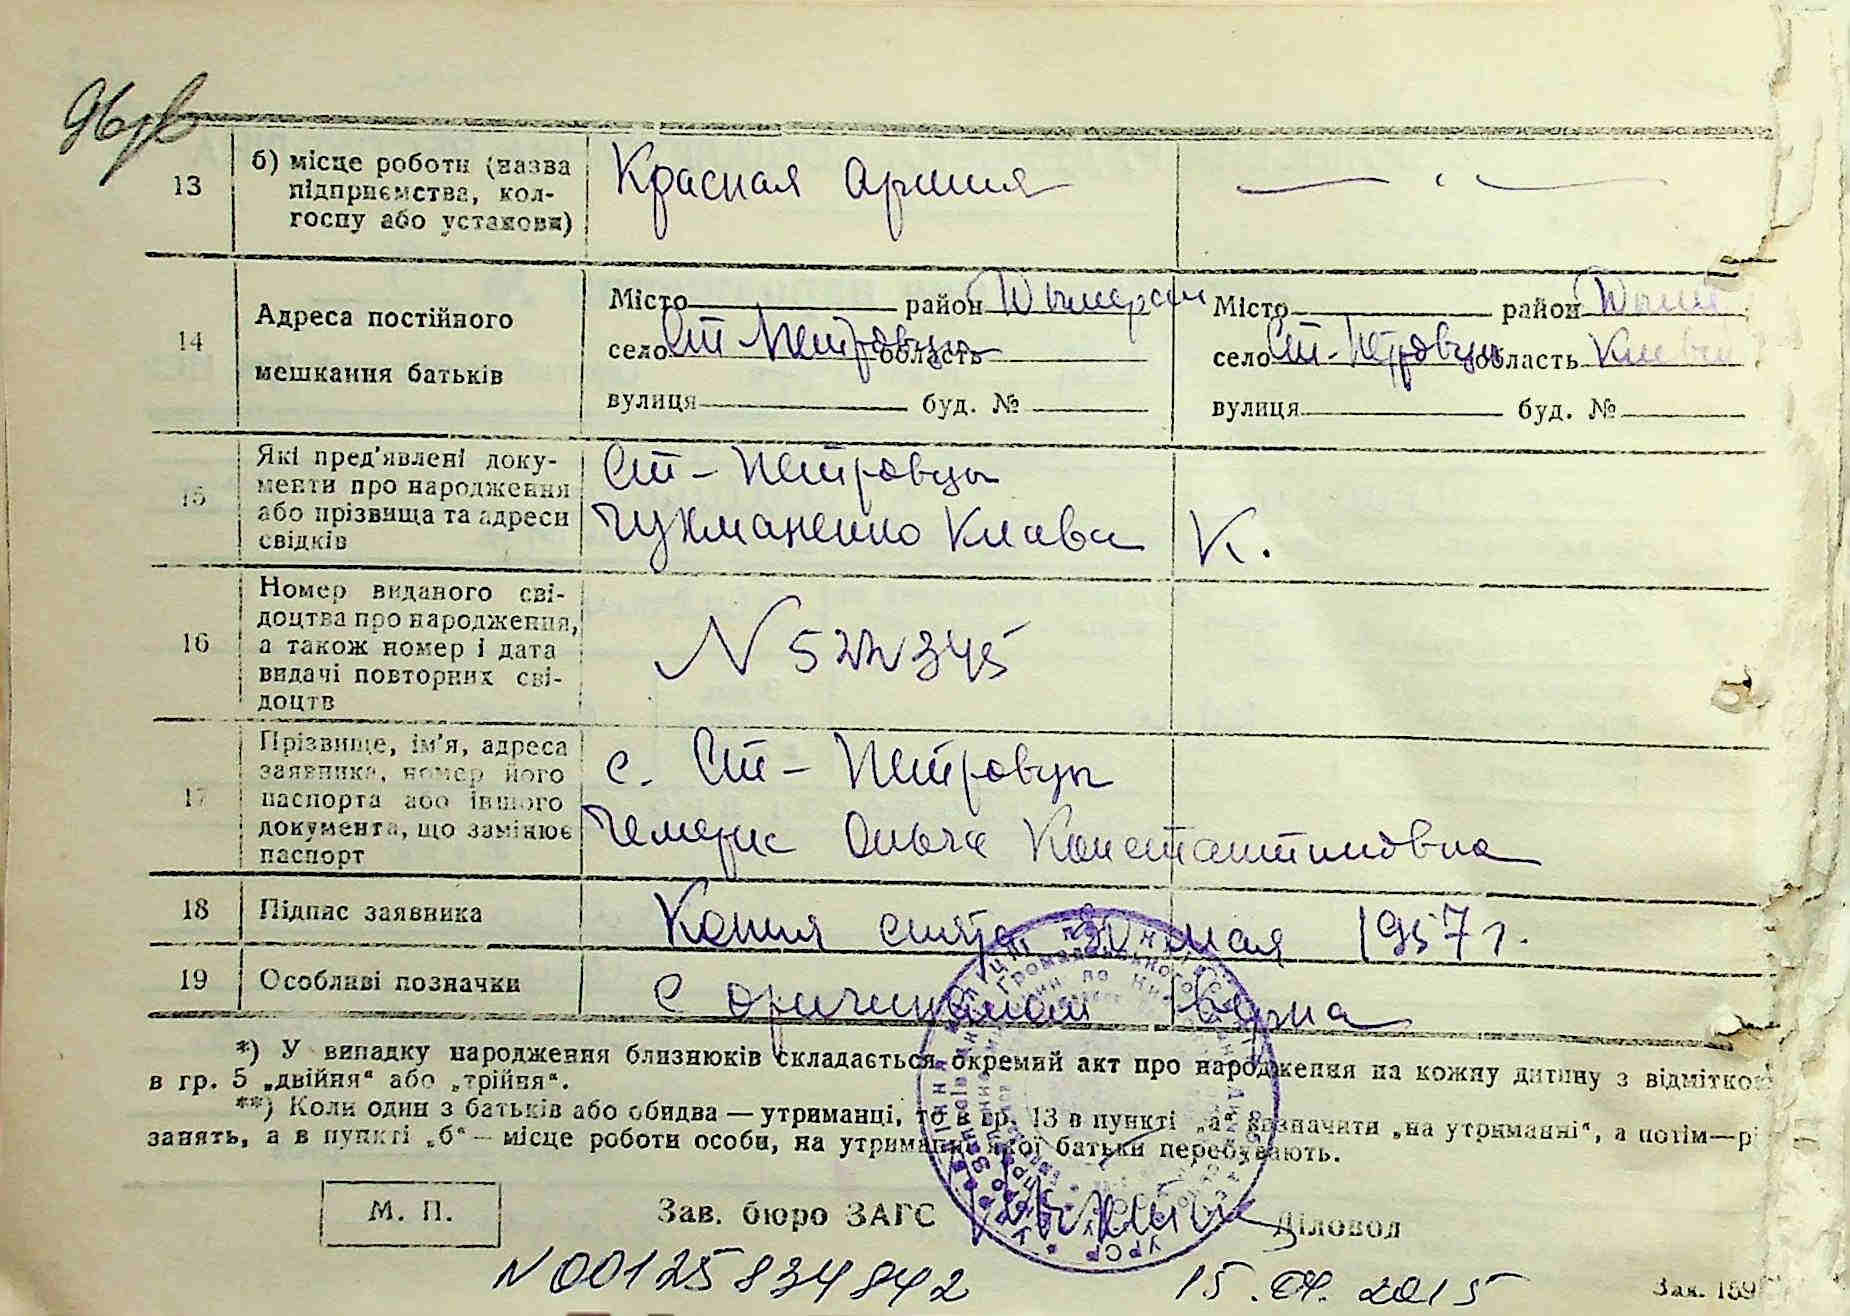 96 зв
13
б) місце роботи (назва
підприємства, кол-
госпу або установи)
Красная армия
— " —
14
Адреса постійного
мешкання батьків
Місто район Дымерск
село Ст Петровцы область
вулиця буд. №
Місто район Дым
село Ст-Петровцы область Киевск
вулиця буд. №
15
Які пред'явлені доку-
менти про народження
або прізвища та адреси
свідків
Ст-Петровцы
Чухманенко Клава К.
16
Номер виданого сві-
доцтва про народження,
а також номер і дата
видачі повторних сві-
доцтв
N 522345
17
Прізвище, ім'я, адреса
заявника, номер його
паспорта або іншого
документа, що замінює
паспорт
с. Ст-Петровцы
Чемерис Ольга Константиновна
18
Підпис заявника
Копия снята 30 мая 1957 г.
19
Особливі позначки
С оригиналом верна
*) У випадку народження близнюків складається окремий акт про народження на кожну дитину з відміткою
в гр. 5 „двійня“ або „трійня“.
**) Коли один з батьків або обидва — утриманці, то в гр. 13 в пункті „а“ зазначити „на утриманні“, а потім—рі
занять, а в пункті „б“ — місце роботи особи, на утриманні якої батьки перебувають.
М. П.
Зав. бюро ЗАГС
Діловод
N 00125834842
15.04.2015
Зак. 159